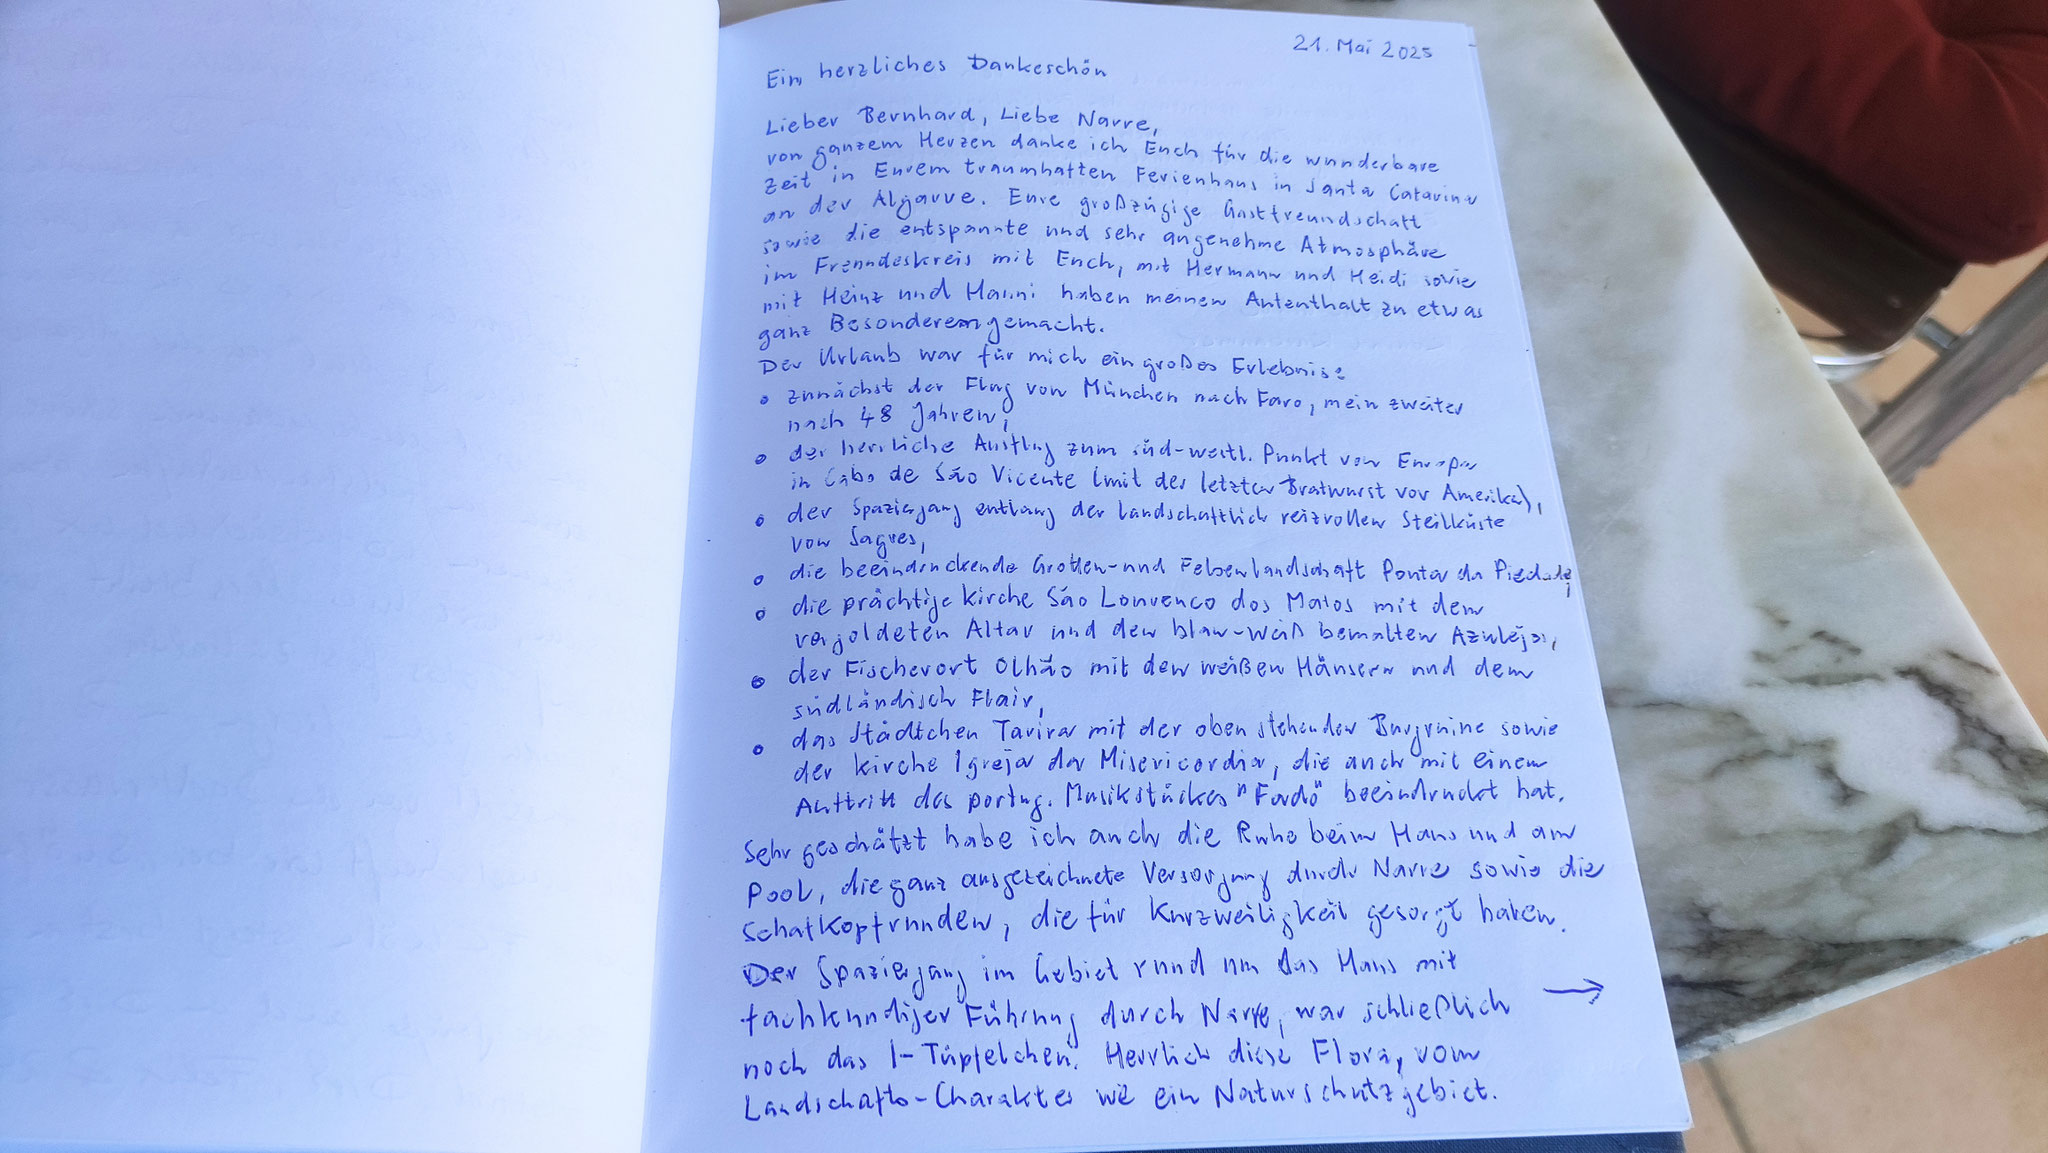 21. Mai 2025
Ein herzliches Dankeschön
Lieber Bernhard, Liebe Narre,
von ganzem Herzen danke ich Euch für die wunderbare
Zeit in Eurem traumhaften Ferienhaus in Santa Catarina
an der Algarve. Eure großzügige Gastfreundschaft
sowie die entspannte und sehr angenehme Atmosphäre
im Freundeskreis mit Euch, mit Hermann und Heidi sowie
mit Heinz und Hanni haben meinen Aufenthalt zu etwas
ganz Besonderem gemacht.
Der Urlaub war für mich ein großes Erlebnis:
• zunächst der Flug von München nach Faro, mein zweiter
nach 48 Jahren,
• der herrliche Ausflug zum süd-westl. Punkt von Europa
in Cabo de São Vicente (mit der letzten Bratwurst vor Amerika),
• der Spaziergang entlang der landschaftlich reizvollen Steilküste
von Sagres,
• die beeindruckende Grotten- und Felsenlandschaft Ponta da Piedade,
• die prächtige Kirche São Lourenco dos Matos mit dem
vergoldeten Altar und den blau-weiß bemalten Azulejos,
• der Fischerort Olhão mit den weißen Häusern und dem
südländisch Flair,
• das Städtchen Tavira mit der oben stehenden Burgruine sowie
der Kirche Igreja da Misericordia, die auch mit einem
Auftritt des portug. Musikstückes "Fado" beeindruckt hat.
Sehr geschätzt habe ich auch die Ruhe beim Haus und am
Pool, die ganz ausgezeichnete Versorgung durch Narre sowie die
Schafkopfrunden, die für Kurzweiligkeit gesorgt haben.
Der Spaziergang im Gebiet rund um das Haus mit
fachkundiger Führung durch Narre, war schließlich
noch das I-Tüpfelchen. Herrlich diese Flora, vom
Landschafts-Charakter wie ein Naturschutzgebiet.